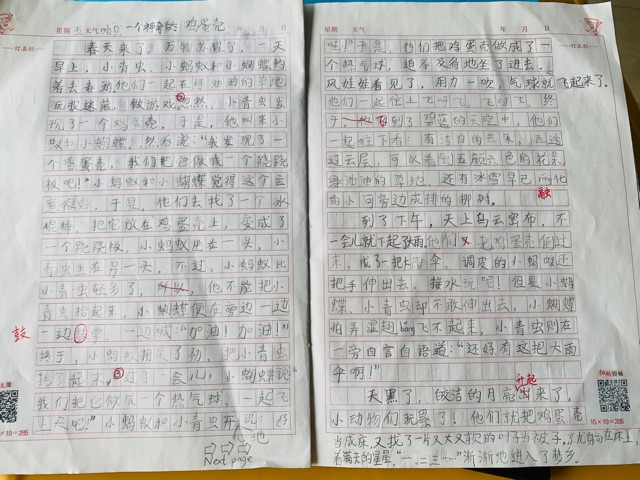 星期五 天气晴 一个神奇的鸡蛋壳 年 月 日
订正栏
春天来了,万物苏醒了,一天
早上,小青虫、小蚂蚁和小蝴蝶约
着去春游他们一起在绿油油的草地
玩捉迷藏、做游戏忽然,小青虫发
现了一个鸡蛋壳。于是,他叫来小
蚁和小蝴蝶,然后说:“我发现了一
个鸡蛋壳,我们把它做成一个跷跷
板吧!”小蚂蚁和小蝴蝶觉得这个主
意很好,于是,他们去找了一个冰
棍棒,把它放在鸡蛋壳上,变成了
一个跷跷板,小蚂蚁坐在一头,小
青虫坐在另一头,不过,小蚂蚁比
小青虫轻多了,他不能把小
青虫抬起来,小蝴蝶便在旁边一边
鼓
一边喊“加油!加油!”
终于,小蚂蚁用足了劲,把小青虫
抬了起来,一会儿,小蝴蝶说:“
我们把它做成一个热气球,一起飞
上天吧!”小蚂蚁和小青虫开心地说:“好
Next page
15×19=285
星期 天气 年 月 日
订正栏
哇!”于是,他们把鸡蛋壳做成了一
个热气球,迫不及待地坐了进去。
风娃娃看见了,用力一吹,气球就飞起来了。
他们一起往上飞呀飞,飞呀飞,终
于,到了碧蓝的天空中,他们
一起往下看:有洁白的云朵,
过云层,可以看到五颜六色的花朵、
绿油油的草地,还有冰雪早已融化
融
的小河旁边成排的柳树。
到了下午,天上乌云密布,不
一会儿就下起了大雨,他们把鸡蛋壳倒过
来,成了一把大雨伞,调皮的小蚂蚁还
把手伸出去,接水玩吧!但是小蝴
蝶、小青虫却不敢伸出去,小蝴蝶
怕弄湿翅bǎng飞不起来,小青虫则在
一旁自言自语道:“还好有这把大雨
伞啊!”
天黑了,皎洁的月亮升起来了,
小动物们玩累了!他们就把鸡蛋壳
当成床,又找了一片又大又软的叶子当被子,
看满天的星星,渐渐地进入了梦乡。
15×19=285